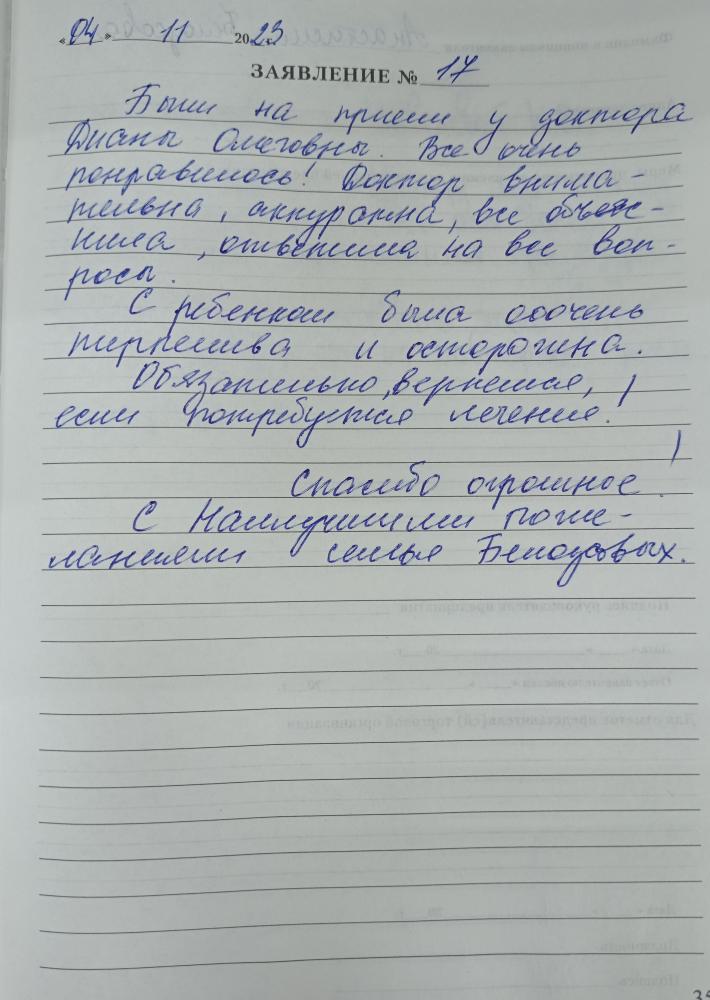 «04» 11 2023
ЗАЯВЛЕНИЕ № 17
Были на приеме у доктора
Дианы Олеговны. Все очень
понравилось! Доктор внима-
тельна, аккуратна, все объяс-
нила, ответила на все воп-
росы.
С ребенком была ооочень
терпелива и осторожна.
Обязательно, вернемся,
если потребуется лечение!
Спасибо огромное!
С Наилучшими поже-
ланиями семья Белоусовых.